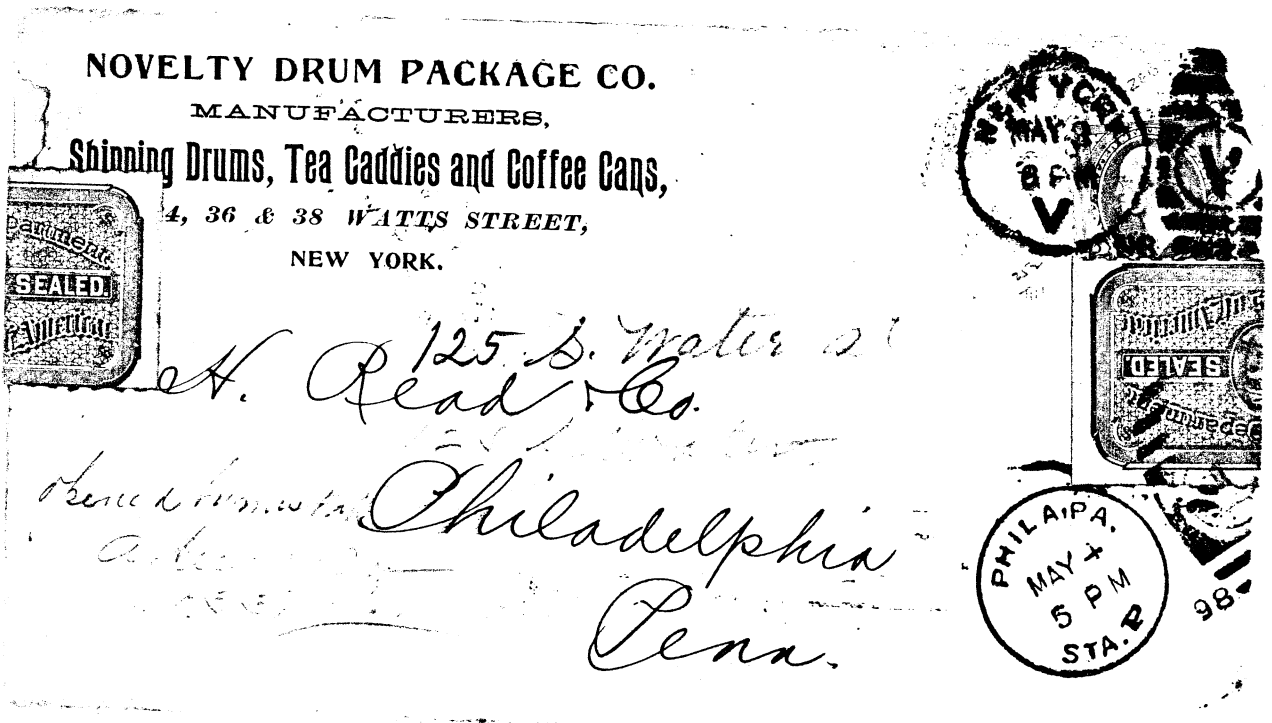 NOVELTY DRUM PACKAGE CO.
MANUFACTURERS,
Shipping Drums, Tea Caddies and Coffee Cans,
4, 36 & 38 WATTS STREET,
NEW YORK.
NEW YORK
MAY 3
8 PM
V
V
partment
SEALED.
American
SEALED.
125 S. Water st
H. Read & Co.
Philadelphia
Penn.
PHILA, PA.
MAY 4
5 PM
STA.
98